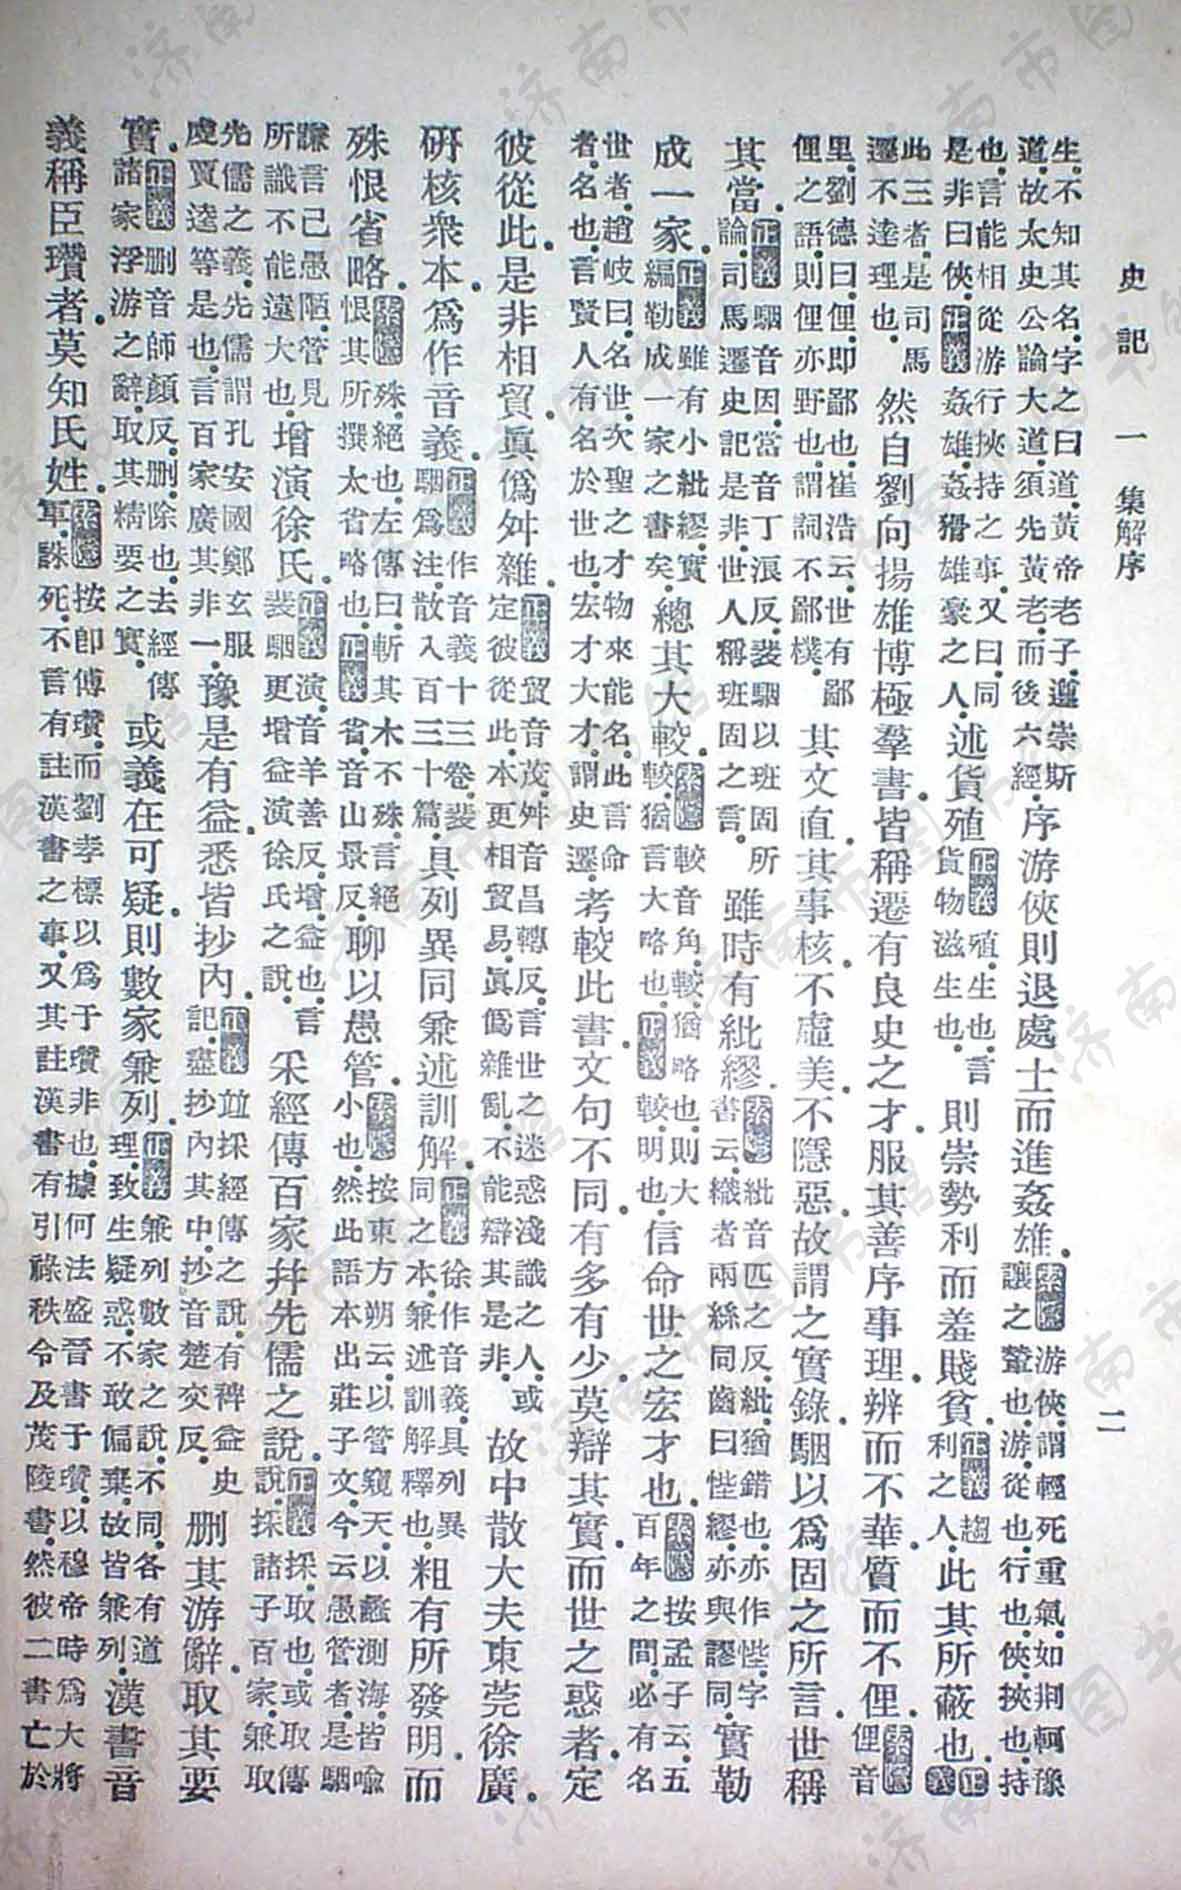 史記一 集解序 二
生.不知其名.字之曰道.黃帝老子.遵崇斯道.故太史公論大道.須先黃老.而後六經.序游俠則退處士而進姦雄.索隱游俠.謂輕死重氣.如荆軻豫讓之輩也.游.從也.行也.俠.挾也.持
也.言能相從游行挾持之事.又曰.同是非曰俠.正義姦雄.姦猾雄豪之人.述貨殖正義殖.生也.言貨物滋生也.則崇勢利而羞賤貧.正義趨利之人.此其所蔽也.正義
此三者.是司馬遷不達理也.然自劉向揚雄博極羣書.皆稱遷有良史之才.服其善序事理.辨而不華.質而不俚.索隱俚音
里.劉德曰.俚.卽鄙也.崔浩云.世有鄙俚之語.則俚亦野也.謂詞不鄙樸.其文直.其事核.不虛美.不隱惡.故謂之實錄.駰以爲固之所言世稱
其當.正義駰音因.當音丁浪反.裴駰以班固所論.司馬遷史記是非.世人稱班固之言.雖時有紕繆.索隱紕音匹之反.紕.猶錯也.亦作悂.字書云.織者兩絲同齒曰悂.繆.亦與謬同.實勒
成一家.正義雖有小紕繆.實編勒成一家之書矣.總其大較.索隱較音角.較.猶略也.則大較.猶言大略也.正義較.明也.信命世之宏才也.索隱按孟子云.五百年之間.必有名
世者.趙岐曰.名世.次聖之才.物來能名.此言命者.名也.言賢人有名於世也.宏才.大才.謂史遷.考較此書.文句不同.有多有少.莫辯其實.而世之惑者.定
彼從此.是非相貿.眞僞舛雜.正義貿音茂.舛音昌轉反.言世之迷惑淺識之人.或定彼從此.本更相貿易.眞僞雜亂.不能辯其是非.故中散大夫東莞徐廣.
研核衆本.爲作音義.正義作音義十三卷.裴駰爲注.散入百三十篇.具列異同.兼述訓解.正義徐作音義.具列異同之本.兼述訓解釋也.粗有所發明.而
殊恨省略.索隱殊.絕也.左傳曰.斬其木不殊.言絕恨其所撰太省略也.正義省.音山景反.聊以愚管.索隱按東方朔云.以管窺天.以蠡測海.皆喻小也.然此語本出莊子文.今云愚管者.是駰
謙言己愚陋.管見所識不能遠大也.增演徐氏.正義演.音羊善反.增.益也.言裴駰更增益演徐氏之說.采經傳百家幷先儒之說.正義採.取也.或取傳說.採諸子百家.兼取
先儒之義.先儒謂孔安國鄭玄服虔賈逵等是也.言百家廣其非一.豫是有益.悉皆抄內.正義竝採經傳之說.有裨益史記.盡抄內其中.抄音楚交反.删其游辭.取其要
實.正義删音師顏反.删.除也.去經傳諸家浮游之辭.取其精要之實.或義在可疑.則數家兼列.正義兼列數家之說.不同.各有道理.致生疑惑.不敢偏棄.故皆兼列.漢書音
義稱臣瓚者.莫知氏姓.索隱按卽傅瓚.而劉孝標以爲于瓚非也.據何法盛晉書于瓚.以穆帝時爲大將軍.誅死.不言有註漢書之事.又其註漢書.有引祿秩令及茂陵書.然彼二書亡於